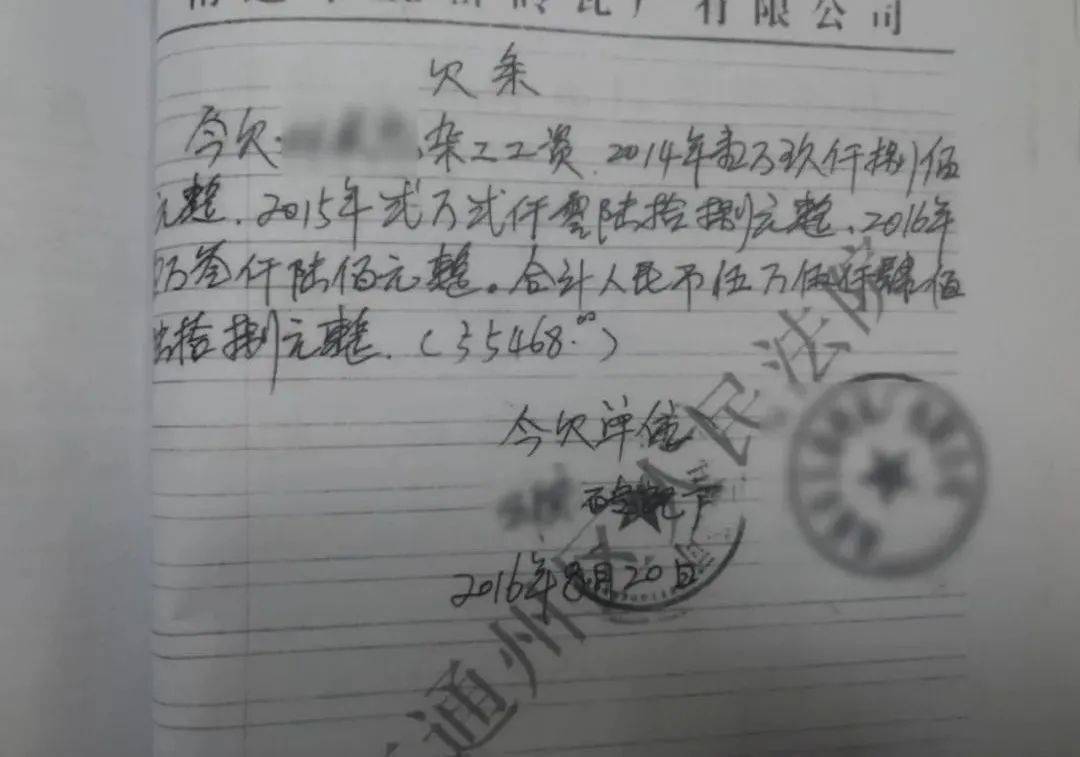 瓦厂有限公司
欠条
今欠 杂工工资.2014年壹万玖仟捌佰
元整.2015年弍万弍仟零陆拾捌元整.2016年
万叁仟陆佰元整。合计人民币伍万伍仟肆佰
拾捌元整.(55468.00)
今欠单位
砖瓦厂
2016年8月20日
通州区人民法院